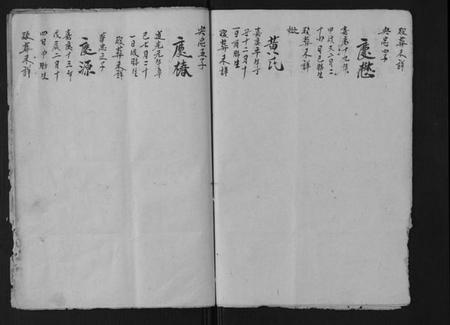 殁葬未詳
癸忠四子
慶懋
嘉慶十九年
甲戌又二月二
十四日巳時生
殁葬未詳
娶
黄氏
嘉慶年
十二月十
一日酉時生
殁葬未詳
癸忠五子
慶椿
道光元年辛
巳七月二十
一日戌時生
殁葬未詳
華忠三子
慶源
嘉慶十三年
戊辰月十
四日申時生
殁葬未詳